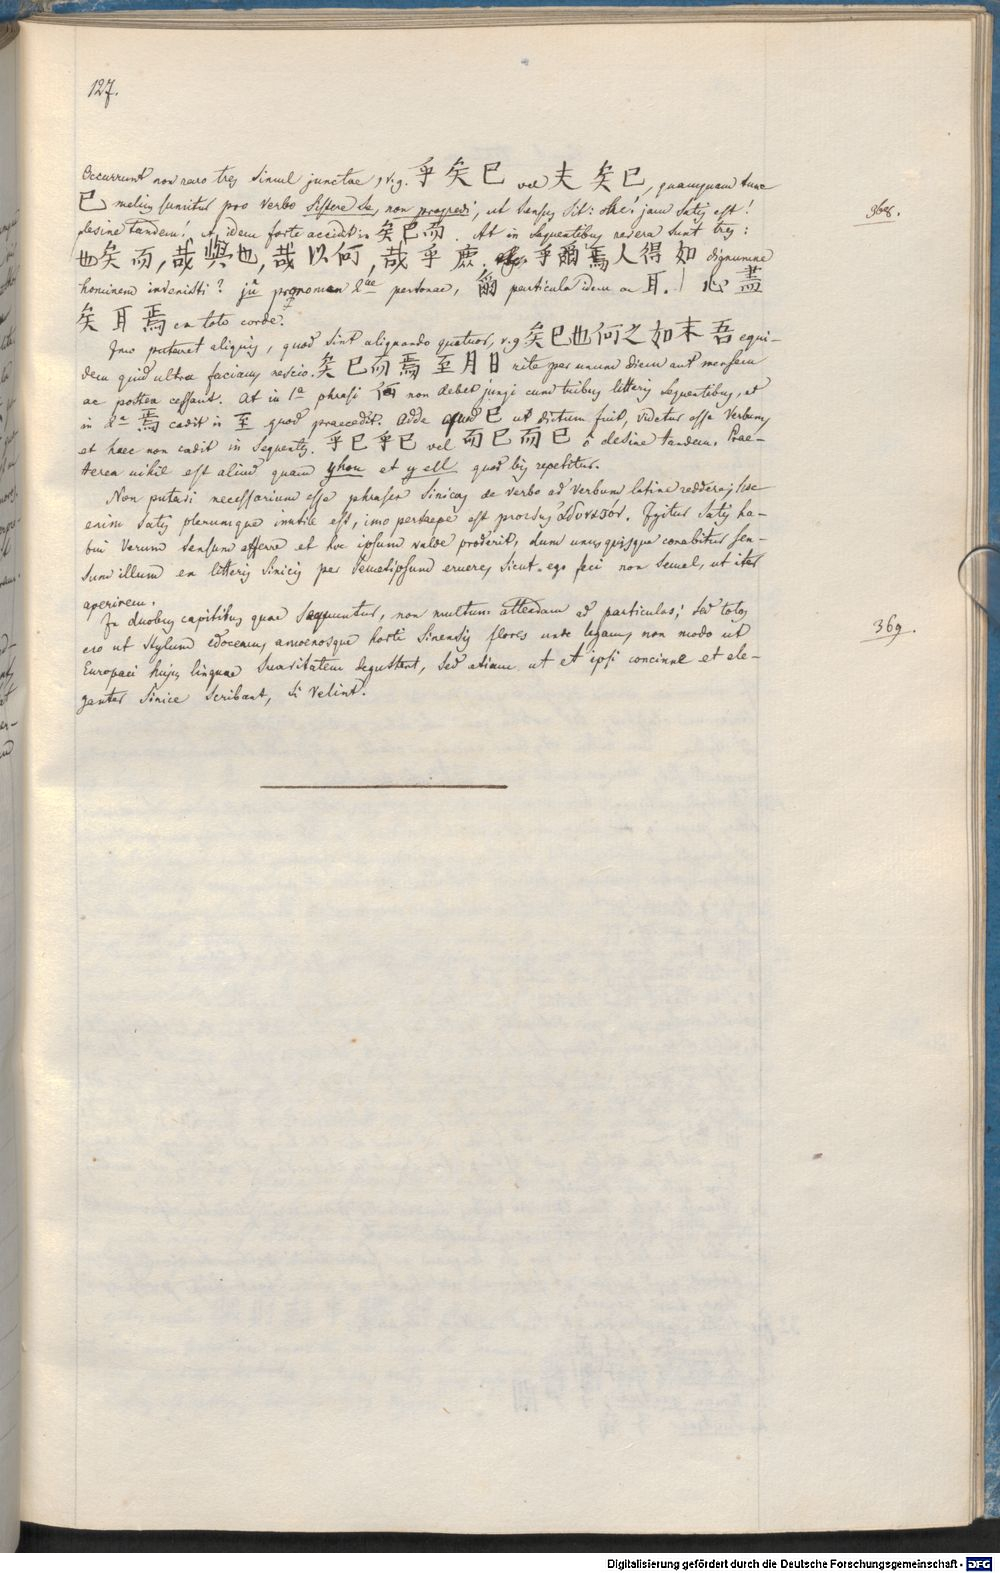 127.
Occurrunt non raro tres simul junctae, v.g. 乎矣已 vel 夫矣已, quamquam tunc
已 melius sumitur pro verbo sistere se, non progredi, ut sensus sit: ohe! jam satis est!
368.
desine tandem! et idem forte accidit in 矣已而. At in sequentibus revera sunt tres:
也矣而, 哉與也, 哉以何, 哉乎庶. 乎爾焉人得如 dignumne
hominem invenisti? ju pronomen 2ae personae, 爾 particula idem ac 耳. 心盡
矣耳焉 ex toto corde.
Imo putaret aliquis, quod sint aliquando quatuor, v.g 矣已也何之如末吾 equi-
dem quid ultra faciam nescio. 矣已而焉至月日 rite per unum diem aut mensem
ac postea cessant. At in 1a phrasi 何 non debet jungi cum tribus litteris sequentibus, et
in 2a 焉 cadit in 至 quod praecedit. Adde quod 已 ut dictum fuit, videtur esse verbum,
et haec non cadit in sequentes. 乎已乎已 vel 而已而已 ô desine tandem. Prae-
terea nihil est aliud quam yhou et y ell quod bis repetitur.
Non putavi necessarium esse phrases Sinicas de verbo ad verbum latine reddere; hoc
enim satis plerumque inutile est, imo persaepe est prorsus ἀδύνατον. Igitur satis ha-
bui verum sensum efferre et hoc ipsum valde proderit, dum unusquisque conabitur sen-
sum illum ex litteris Sinicis per semetipsum eruere, sicut ego feci non semel, ut iter
aperirem.
In duobus capitibus quae sequuntur, non multum attendam ad particulas; sed totus
369.
ero ut stylum edocemus amoenosque horti Sinensis flores unde legam, non modo ut
Europaei hujus linguae suavitatem degustent, sed etiam ut et ipsi concinne et ele-
ganter Sinice scribant, si velint.
Digitalisierung gefördert durch die Deutsche Forschungsgemeinschaft - DFG